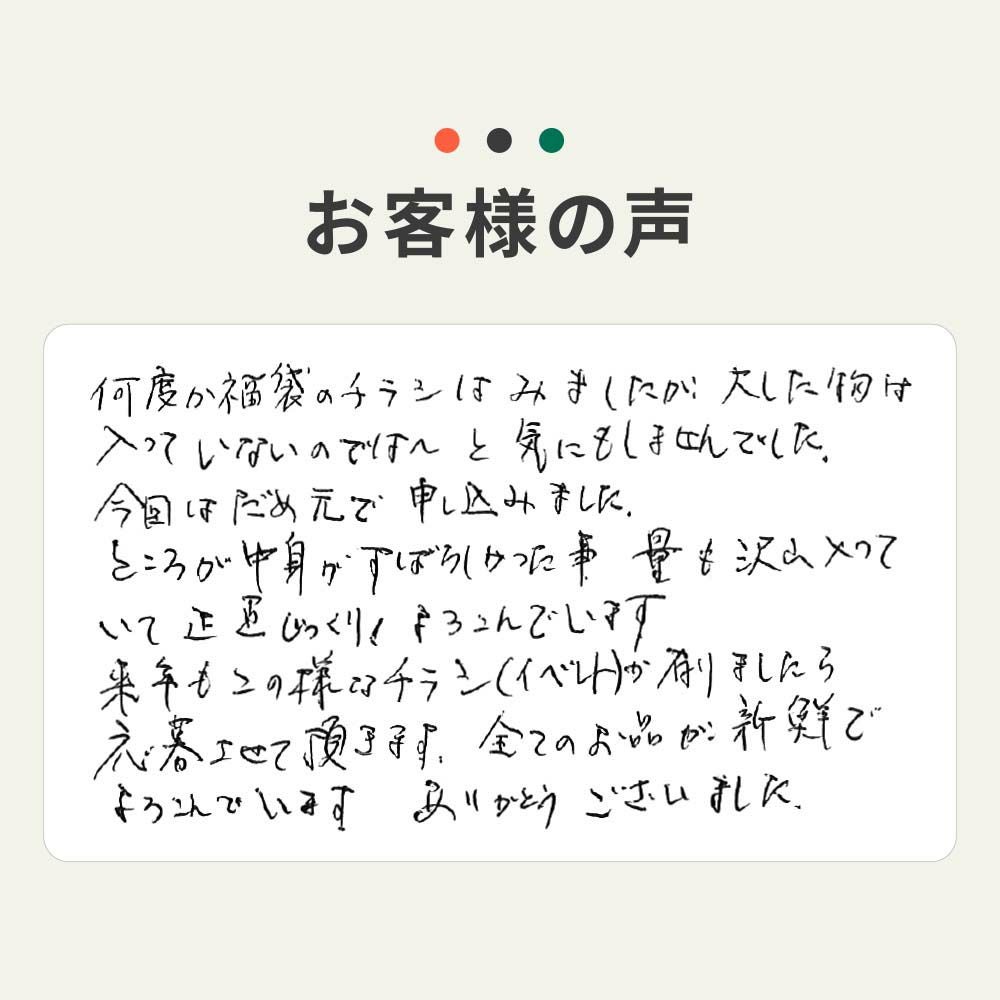 お客様の声
何度か福袋のチラシはみましたが 大した物は
入っていないのでは〜と気にもしませんでした。
今回はだめ元で申し込みました。
ところが中身がすばらしかった事 量も沢山入って
いて正直びっくり! よろこんでいます
来年もこの様なチラシ(イベント)が有りましたら
応募させて頂きます。全てのお品が新鮮で
よろこんでいます ありがとうございました。